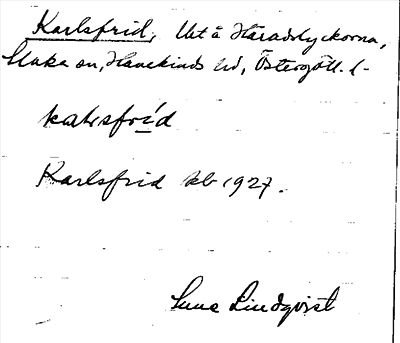 Karlsfrid, Ut å Häradslyckorna,
Slaka sn, Hanekinds hd, Östergötl. l-
kaḷsfríd
Karlsfrid kb 1927.
Sune Lindqvist